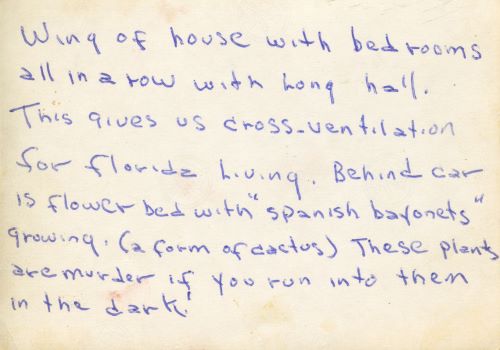 Wing of house with bedrooms
all in a row with Long hall.
This gives us cross-ventilation
for Florida Living. Behind car
is flower bed with "spanish bayonets"
growing. (a form of cactus) These plants
are murder if you run into them
in the dark!